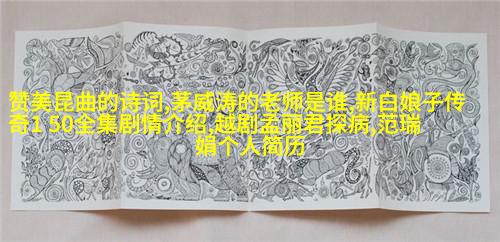 赞美昆曲的诗词,茅威涛的老师是谁,新白娘子传
奇1 50全集剧情介绍,越剧孟丽君探病,范瑞
娟个人简历